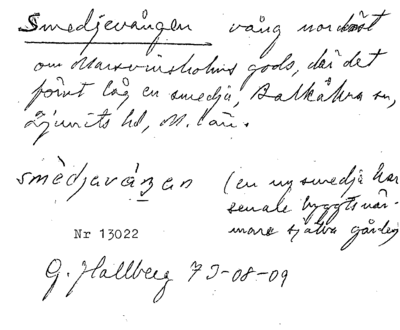 Smedjevången vång nordost
om Marsvinsholms gods, där det
förut låg en smedja, Balkåkra sn,
Ljunits hd, M. län.
smèdjavá̱ŋan (en ny smedja har
senare byggts när-
mare själva gården)
Nr 13022
G. Hallberg 73-08-09